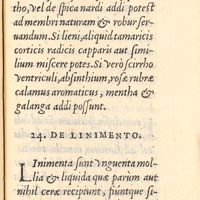 tho, vel de spica nardi addi potest
ad membri naturam & robur ser-
uandum. Si lieni, aliquid tamaricis
corticis radicis capparis aut simi-
lium miscere potes. Si verò scirrho
ventriculi, absinthium, rosæ rubræ
calamus aromaticus, mentha &
galanga addi possunt.
24. DE LINIMENTO.
Linimenta sunt vnguenta mol-
lia & liquida quæ parum aut
nihil ceræ recipiunt, fiúntque si-